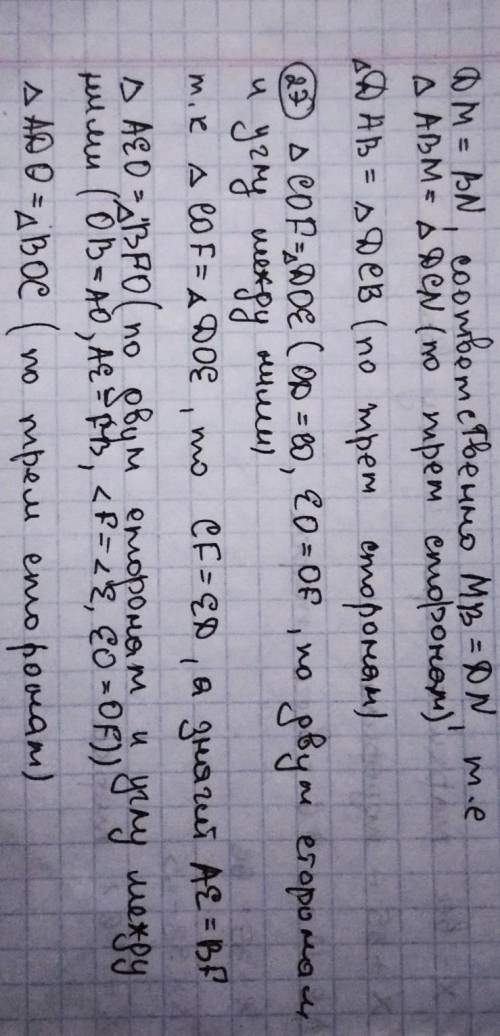 DM = BN, соответственно MB = DN, т.е
△ ABM = △ DCN (по трем сторонам)
△DAB = △DCB (по трем сторонам)
27 △ COF = △DOE (OD = CO, EO = OF, по двум сторонам,
и углу между ними)
т.к △ COF = △ DOE, то CF = ED, а значит AE = BF
△ AEO = △BFO (по двум сторонам и углу между
ними (OB = AO, AE = FB, ∠F = ∠E, EO = OF))
△ADO = △BOC (по трем сторонам)